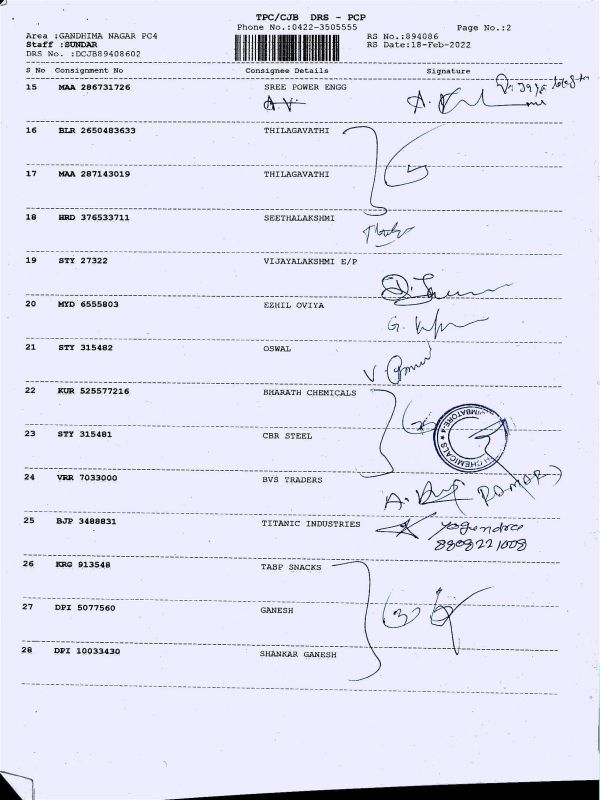 TPC/CJB DRS - PCP
Phone No.:0422-3505555 Page No.:2
Area :GANDHIMA NAGAR PC4 RS No.:894086
Staff :SUNDAR RS Date:18-Feb-2022
DRS No. :DCJB89408602
S No Consignment No Consignee Details Signature
15 MAA 286731726 SREE POWER ENGG
A.V.
16 BLR 2650483633 THILAGAVATHI
17 MAA 287143019 THILAGAVATHI
18 HRD 376533711 SEETHALAKSHMI
19 STY 27322 VIJAYALAKSHMI E/P
20 MYD 6555803 EZHIL OVIYA
21 STY 315482 OSWAL
22 KUR 525577216 BHARATH CHEMICALS
23 STY 315481 CBR STEEL
24 VRR 7033000 BVS TRADERS
25 BJP 3488831 TITANIC INDUSTRIES Yogendra
8808221008
26 KRG 913548 TABP SNACKS
27 DPI 5077560 GANESH
28 DPI 10033430 SHANKAR GANESH